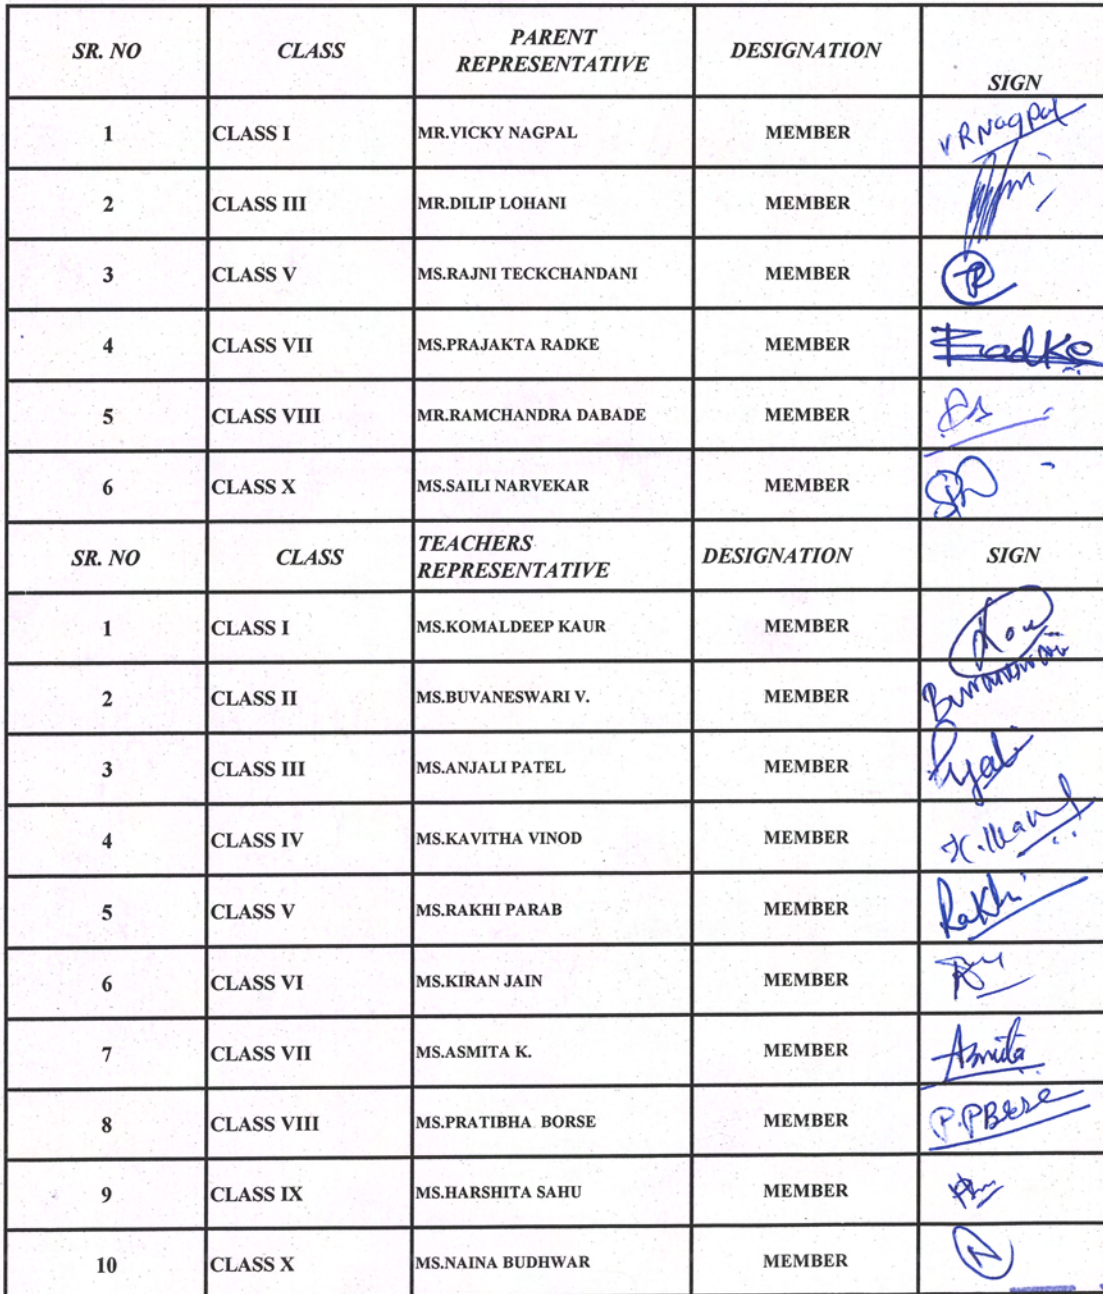 SR. NO CLASS PARENT REPRESENTATIVE DESIGNATION SIGN
1 CLASS I MR.VICKY NAGPAL MEMBER V R Nagpal
2 CLASS III MR.DILIP LOHANI MEMBER
3 CLASS V MS.RAJNI TECKCHANDANI MEMBER
4 CLASS VII MS.PRAJAKTA RADKE MEMBER
5 CLASS VIII MR.RAMCHANDRA DABADE MEMBER
6 CLASS X MS.SAILI NARVEKAR MEMBER
SR. NO CLASS TEACHERS REPRESENTATIVE DESIGNATION SIGN
1 CLASS I MS.KOMALDEEP KAUR MEMBER
2 CLASS II MS.BUVANESWARI V. MEMBER
3 CLASS III MS.ANJALI PATEL MEMBER
4 CLASS IV MS.KAVITHA VINOD MEMBER
5 CLASS V MS.RAKHI PARAB MEMBER Rakhi
6 CLASS VI MS.KIRAN JAIN MEMBER
7 CLASS VII MS.ASMITA K. MEMBER Asmita
8 CLASS VIII MS.PRATIBHA BORSE MEMBER
9 CLASS IX MS.HARSHITA SAHU MEMBER
10 CLASS X MS.NAINA BUDHWAR MEMBER N